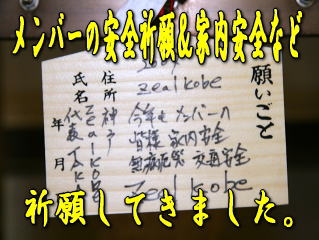 メンバーの安全祈願&家内安全など
zeal kobe
願いごと
今年もメンバーの
皆様 家内安全
無病息災 交通安全
Zeal kobe
住所
神戸
氏名
年 月
祈願してきました。